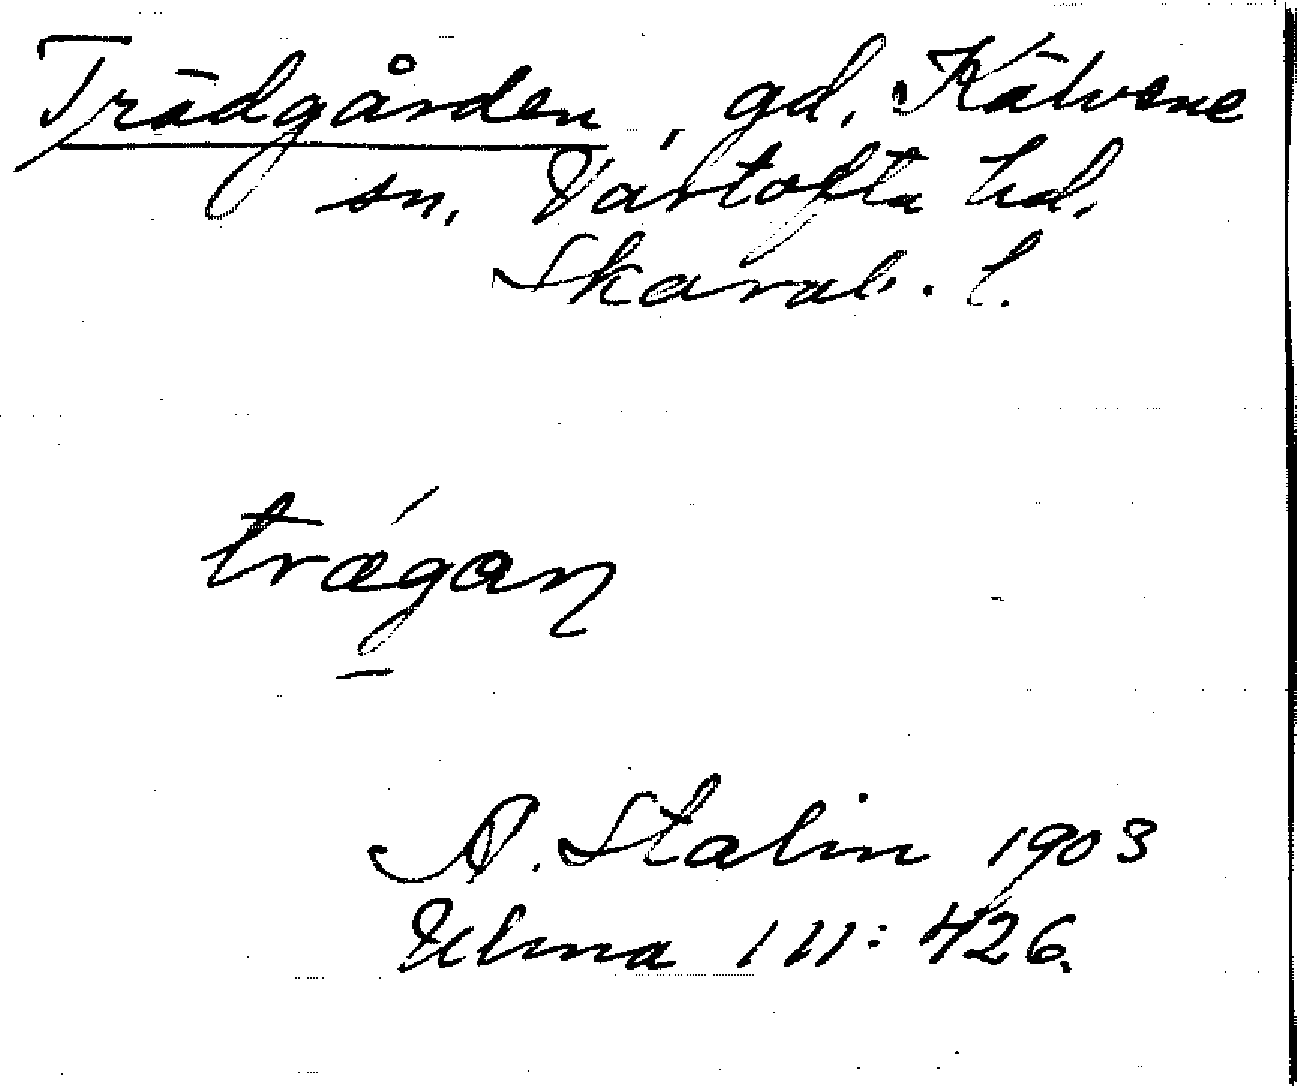 Trädgården, gd. Kälvene
sn. Vartofta hd.
Skarab. l.
trægaŋ
A. Stalin 1903
Ulma 111: 426.